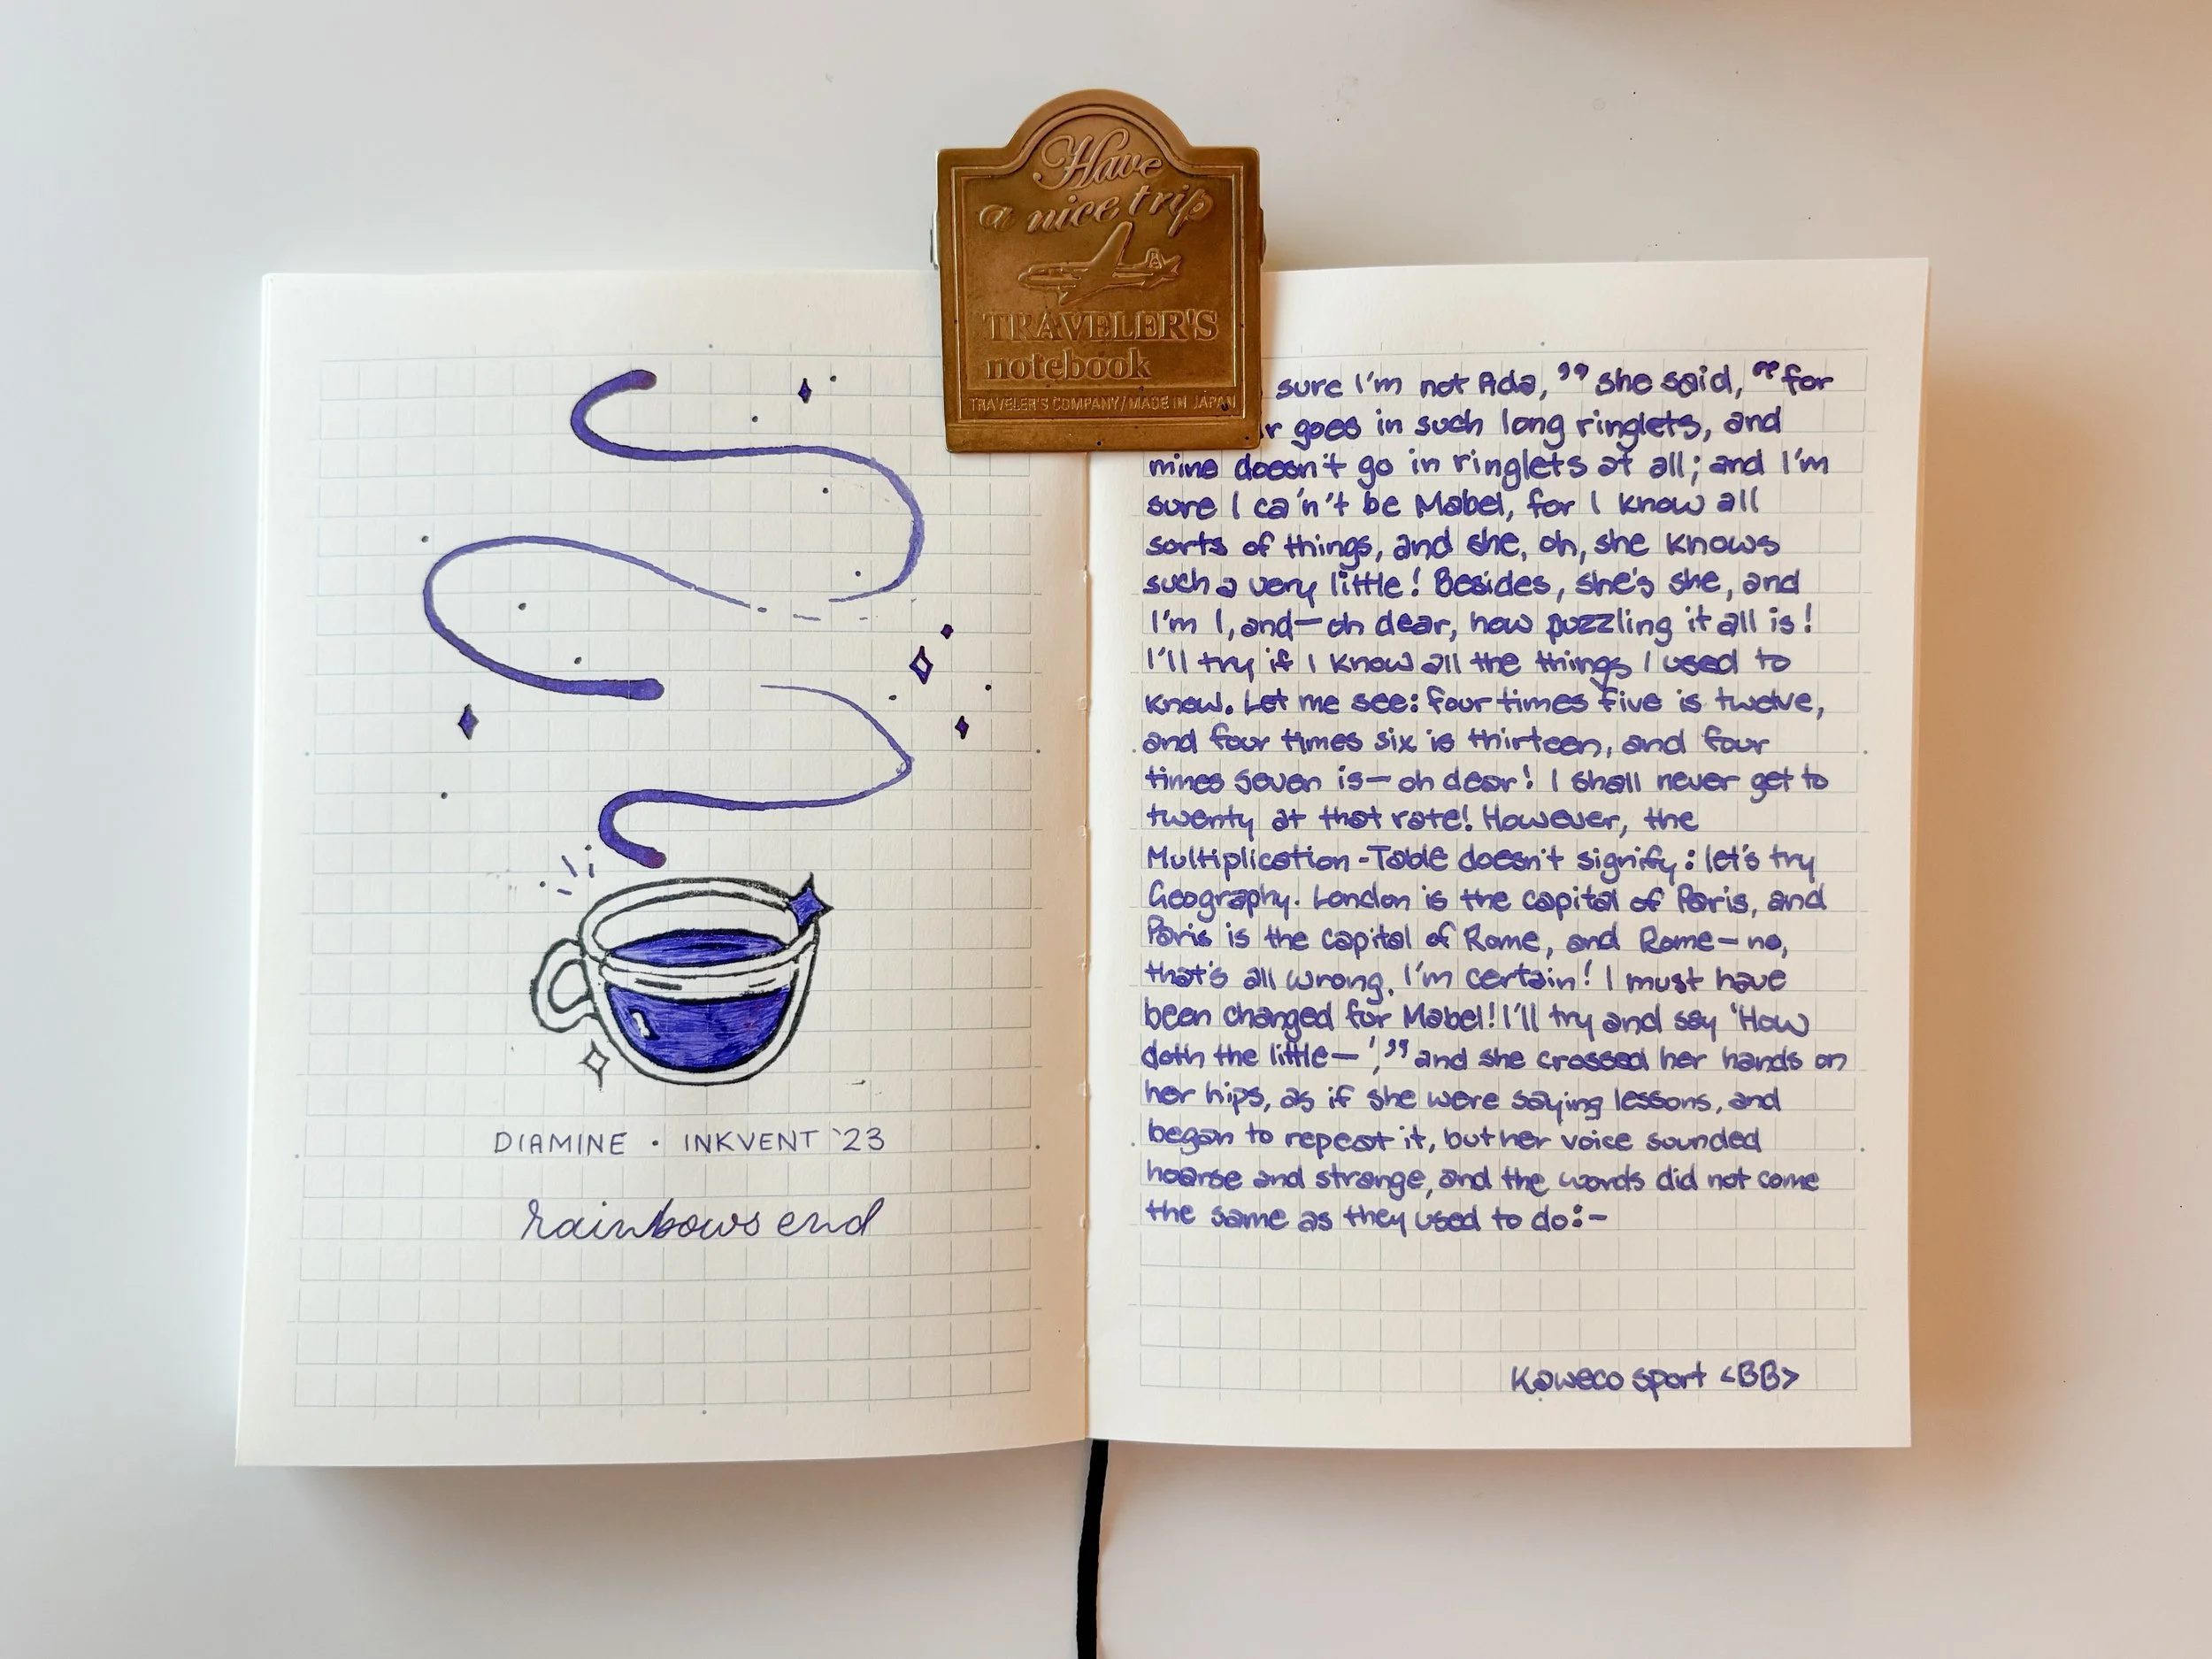 Have
a nice trip
TRAVELER'S
notebook
TRAVELER'S COMPANY/MADE IN JAPAN
DIAMINE · INKVENT '23
rainbows end
sure I'm not Ada,” she said, “for
r goes in such long ringlets, and
mine doesn't go in ringlets at all; and I'm
sure I ca'n't be Mabel, for I know all
sorts of things, and she, oh, she knows
such a very little! Besides, she's she, and
I'm I, and—oh dear, how puzzling it all is!
I'll try if I know all the things I used to
know. Let me see: four times five is twelve,
and four times six is thirteen, and four
times seven is—oh dear! I shall never get to
twenty at that rate! However, the
Multiplication-Table doesn't signify: let's try
Geography. London is the capital of Paris, and
Paris is the capital of Rome, and Rome—no,
that's all wrong, I'm certain! I must have
been changed for Mabel! I'll try and say 'How
doth the little—',” and she crossed her hands on
her hips, as if she were saying lessons, and
began to repeat it, but her voice sounded
hoarse and strange, and the words did not come
the same as they used to do:-
Kaweco sport <BB>